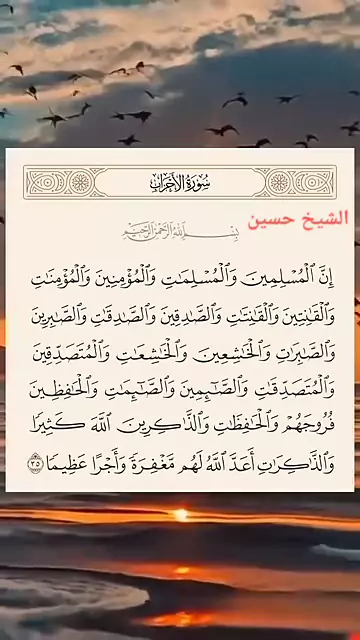 سُورَةُ الْأَحْزَابِ
الشيخ حسين
بِسْمِ اللَّهِ الرَّحْمَٰنِ الرَّحِيمِ
إِنَّ ٱلْمُسْلِمِينَ وَٱلْمُسْلِمَٰتِ وَٱلْمُؤْمِنِينَ وَٱلْمُؤْمِنَٰتِ
وَٱلْقَٰنِتِينَ وَٱلْقَٰنِتَٰتِ وَٱلصَّٰدِقِينَ وَٱلصَّٰدِقَٰتِ وَٱلصَّٰبِرِينَ
وَٱلصَّٰبِرَٰتِ وَٱلْخَٰشِعِينَ وَٱلْخَٰشِعَٰتِ وَٱلْمُتَصَدِّقِينَ
وَٱلْمُتَصَدِّقَٰتِ وَٱلصَّٰٓئِمِينَ وَٱلصَّٰٓئِمَٰتِ وَٱلْحَٰفِظِينَ
فُرُوجَهُمْ وَٱلْحَٰفِظَٰتِ وَٱلذَّٰكِرِينَ ٱللَّهَ كَثِيرًا
وَٱلذَّٰكِرَٰتِ أَعَدَّ ٱللَّهُ لَهُم مَّغْفِرَةً وَأَجْرًا عَظِيمًا ٣٥